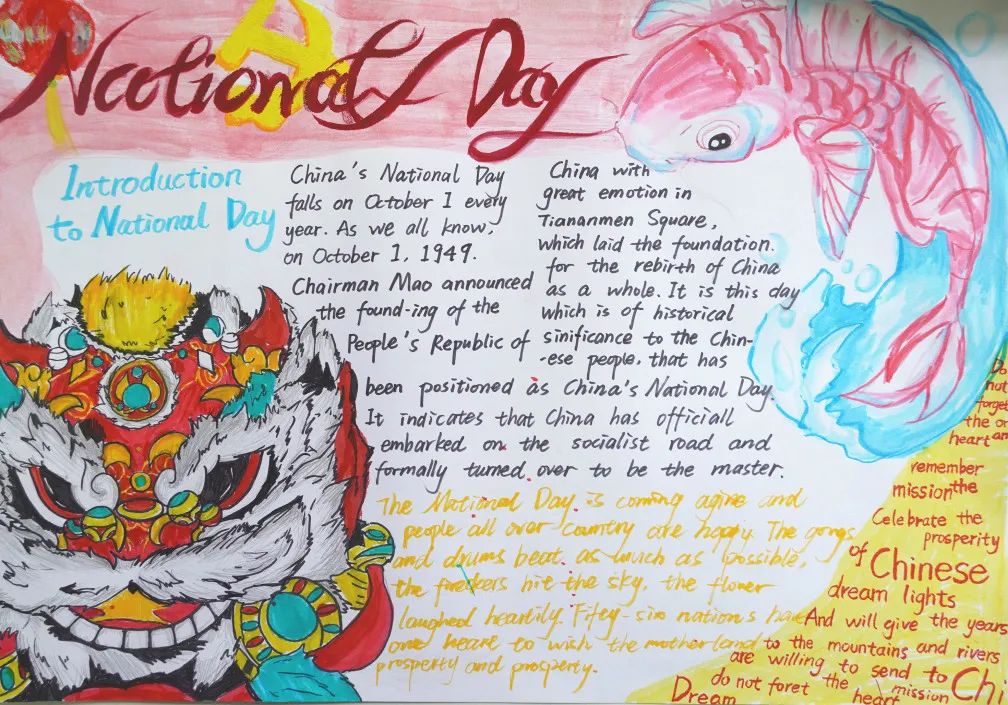 National Day
Introduction
to National Day
China's National Day
falls on October 1 every
year. As we all know,
on October 1, 1949.
Chairman Mao announced
the found-ing of the
People's Republic of
China with
great emotion in
Tiananmen Square,
which laid the foundation.
for the rebirth of China
as a whole. It is this day
which is of historical
sinificance to the Chin-
-ese people. that has
been positioned as China's National Day.
It indicates that China has officiall
embarked on the socialist road and
formally turned over to be the master.
The National Day is coming agine and
people all over country are happy. The gongs
and drums beat. as much as possible,
the firekers hit the sky, the flower
laughed heartily. Fifty-six nations have
one heart to wish the motherland
prosperity and prosperity.
Do
not
forget
the or
heart an
remember
mission the
Celebrate the
prosperity
of Chinese
dream lights
And will give the years
to the mountains and rivers
are willing to send to Chi
do not foret the mission
Dream heart